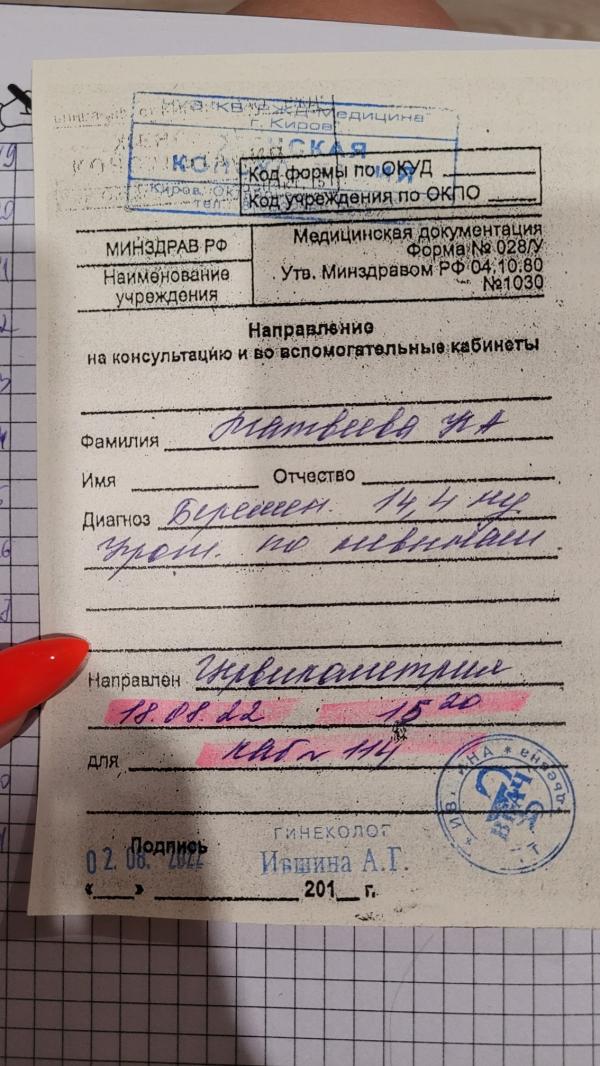 ЧУЗ "КБ "РЖД-Медицина"
г. Киров"
Код формы по ОКУД
Код учреждения по ОКПО
МИНЗДРАВ РФ
Наименование
учреждения
Медицинская документация
Форма № 028/У
Утв. Минздравом РФ 04.10.80
№1030
Направление
на консультацию и во вспомогательные кабинеты
Фамилия Матвеева КА
Имя Отчество
Диагноз Беремен. 14,4 нед
Угроз. по невынаш
Направлен Цервикометрия
18.08.22 15 20
для каб № 114
ВРАЧ
Подпись
ГИНЕКОЛОГ
02.08. 2022
Ившина А.Г.
« » 201 г.